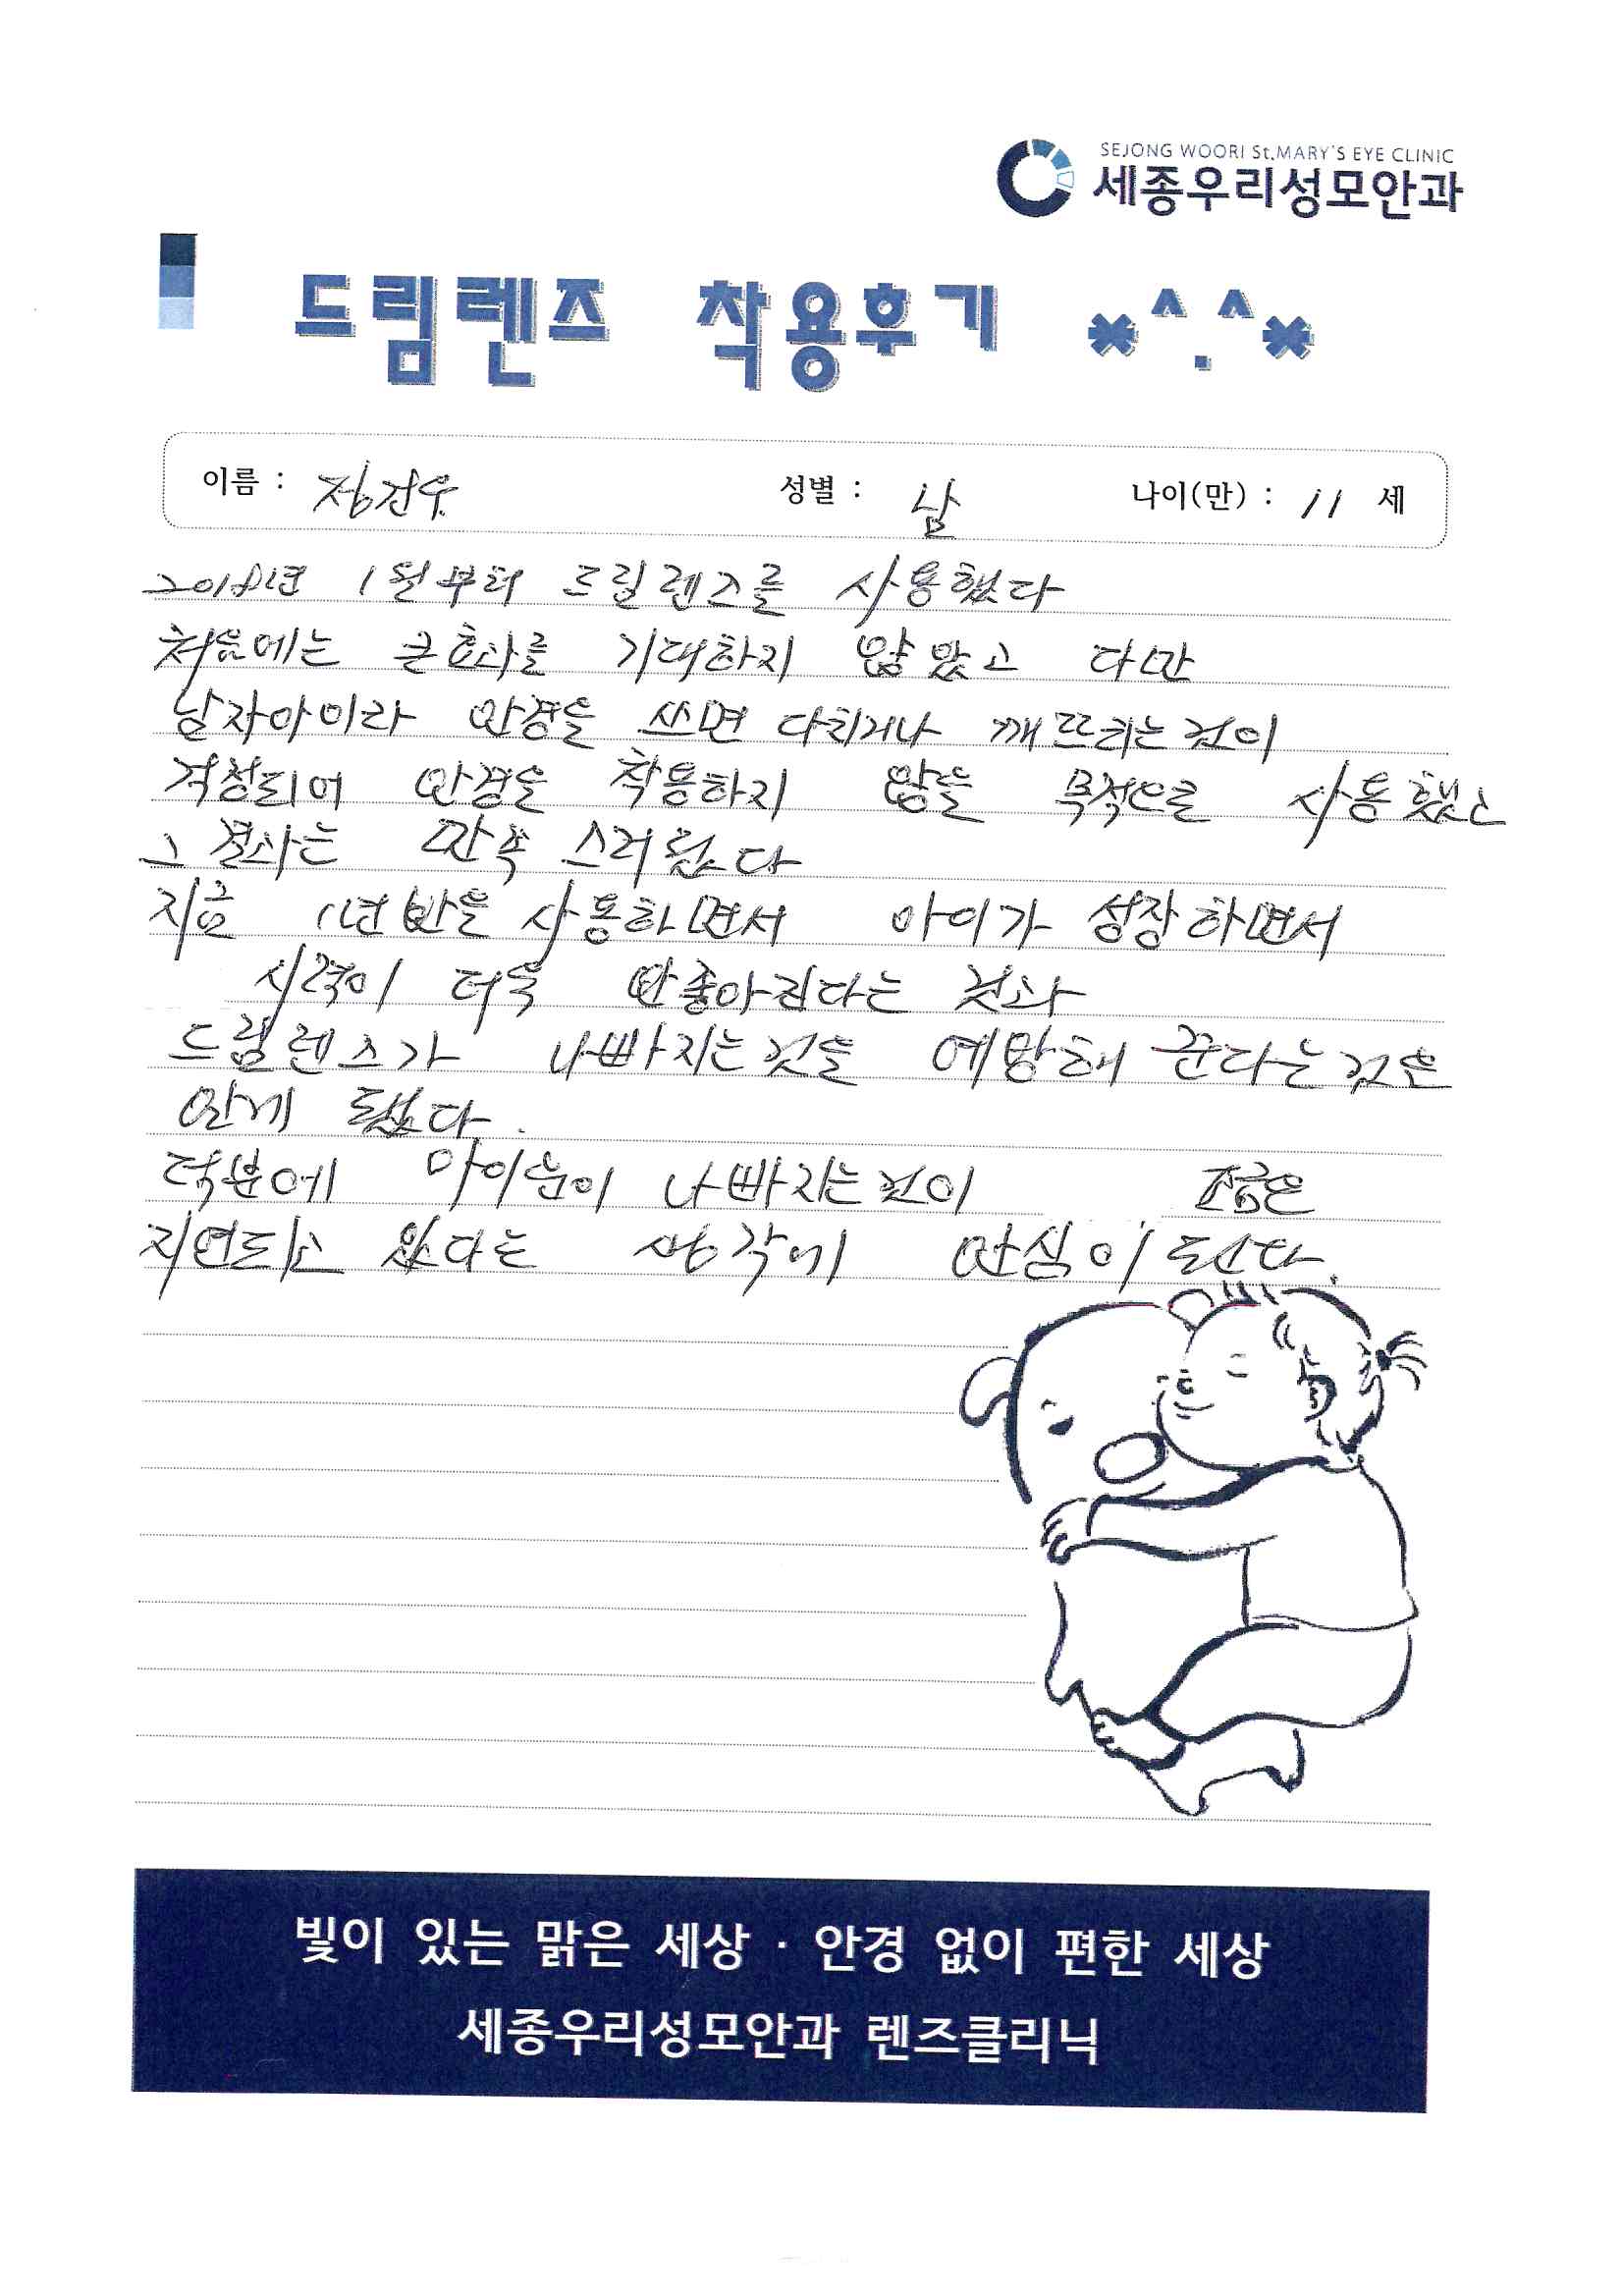 SEJONG WOORI St.MARY'S EYE CLINIC
세종우리성모안과
드림렌즈 착용후기 *^.^*
이름 : 정건우 성별 : 남 나이(만) : 11 세
2018년 1월부터 드림렌즈를 사용했다
처음에는 큰 효과를 기대하지 않았고 다만
남자아이라 안경을 쓰면 다치거나 깨뜨리는 것이
걱정되어 안경을 착용하지 않을 목적으로 사용했고
그 결과는 만족 스러웠다
지금 1년반을 사용하면서 아이가 성장하면서
시력이 더욱 안좋아진다는 것과
드림렌즈가 나빠지는것을 예방해 준다는 것을
알게 됐다.
덕분에 아이눈이 나빠지는것이 조금은
지연되고 있다는 생각에 안심이 된다.
빛이 있는 맑은 세상 · 안경 없이 편한 세상
세종우리성모안과 렌즈클리닉